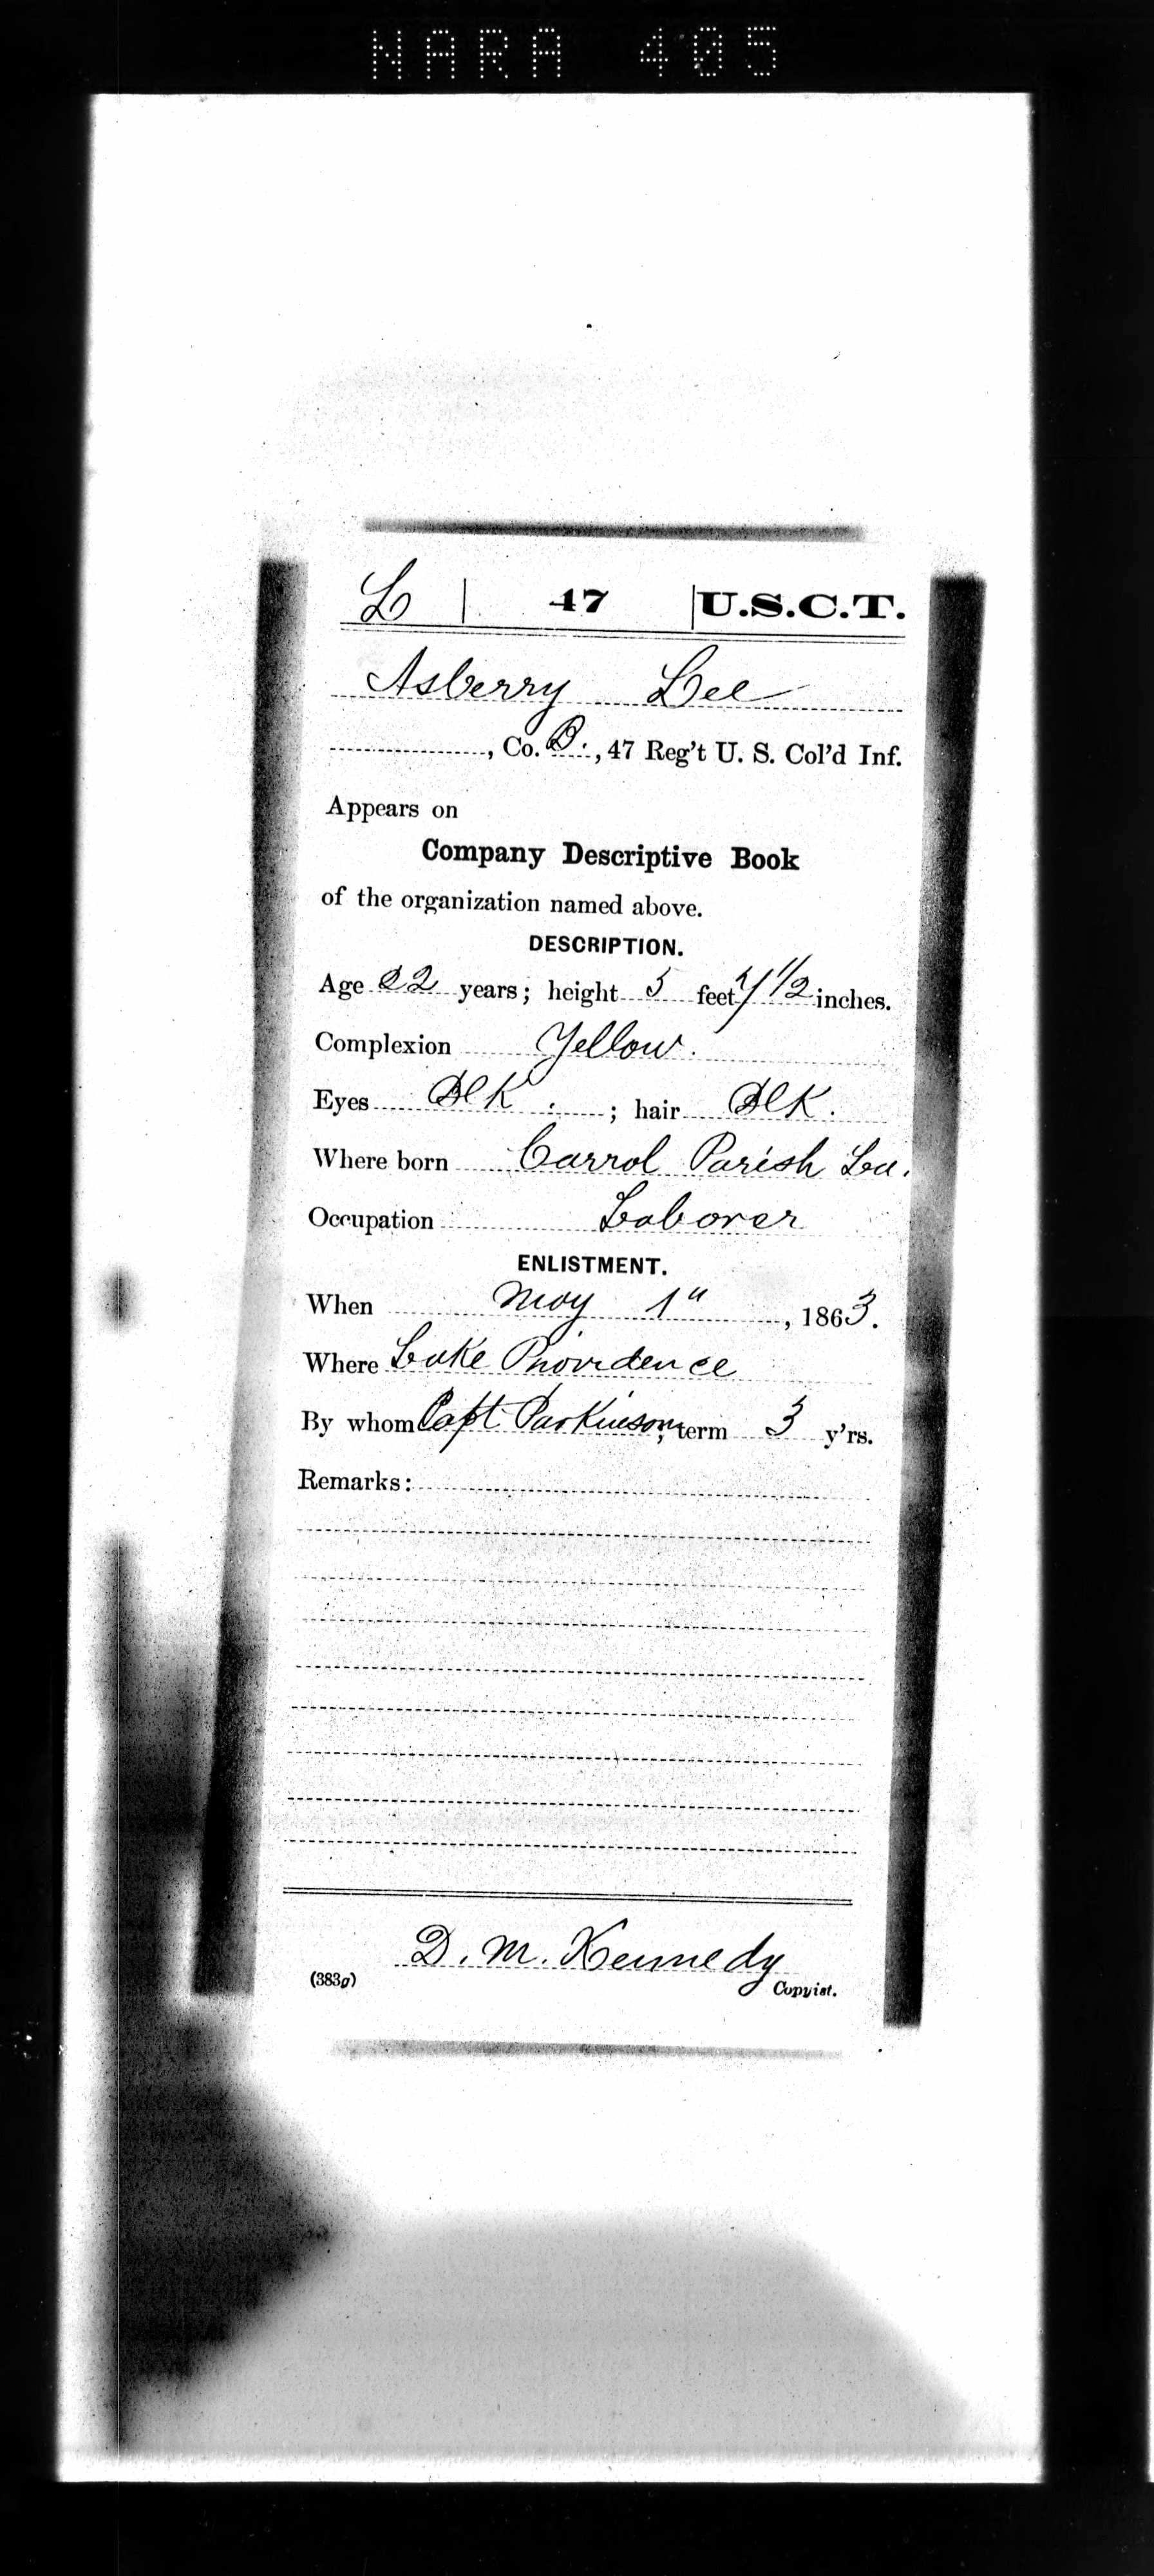 NARA 405
L | 47 | U.S.C.T.
Asberry Lee
, Co. B., 47 Reg't U. S. Col'd Inf.
Appears on
Company Descriptive Book
of the organization named above.
DESCRIPTION.
Age 22 years; height 5 feet 7 1/2 inches.
Complexion Yellow.
Eyes Blk. ; hair Blk.
Where born Carrol Parish La.
Occupation Laborer
ENLISTMENT.
When May 1", 1863.
Where Lake Providence
By whom Capt. Parkinson; term 3 y'rs.
Remarks:
D. M. Kennedy
(383g) Copyist.